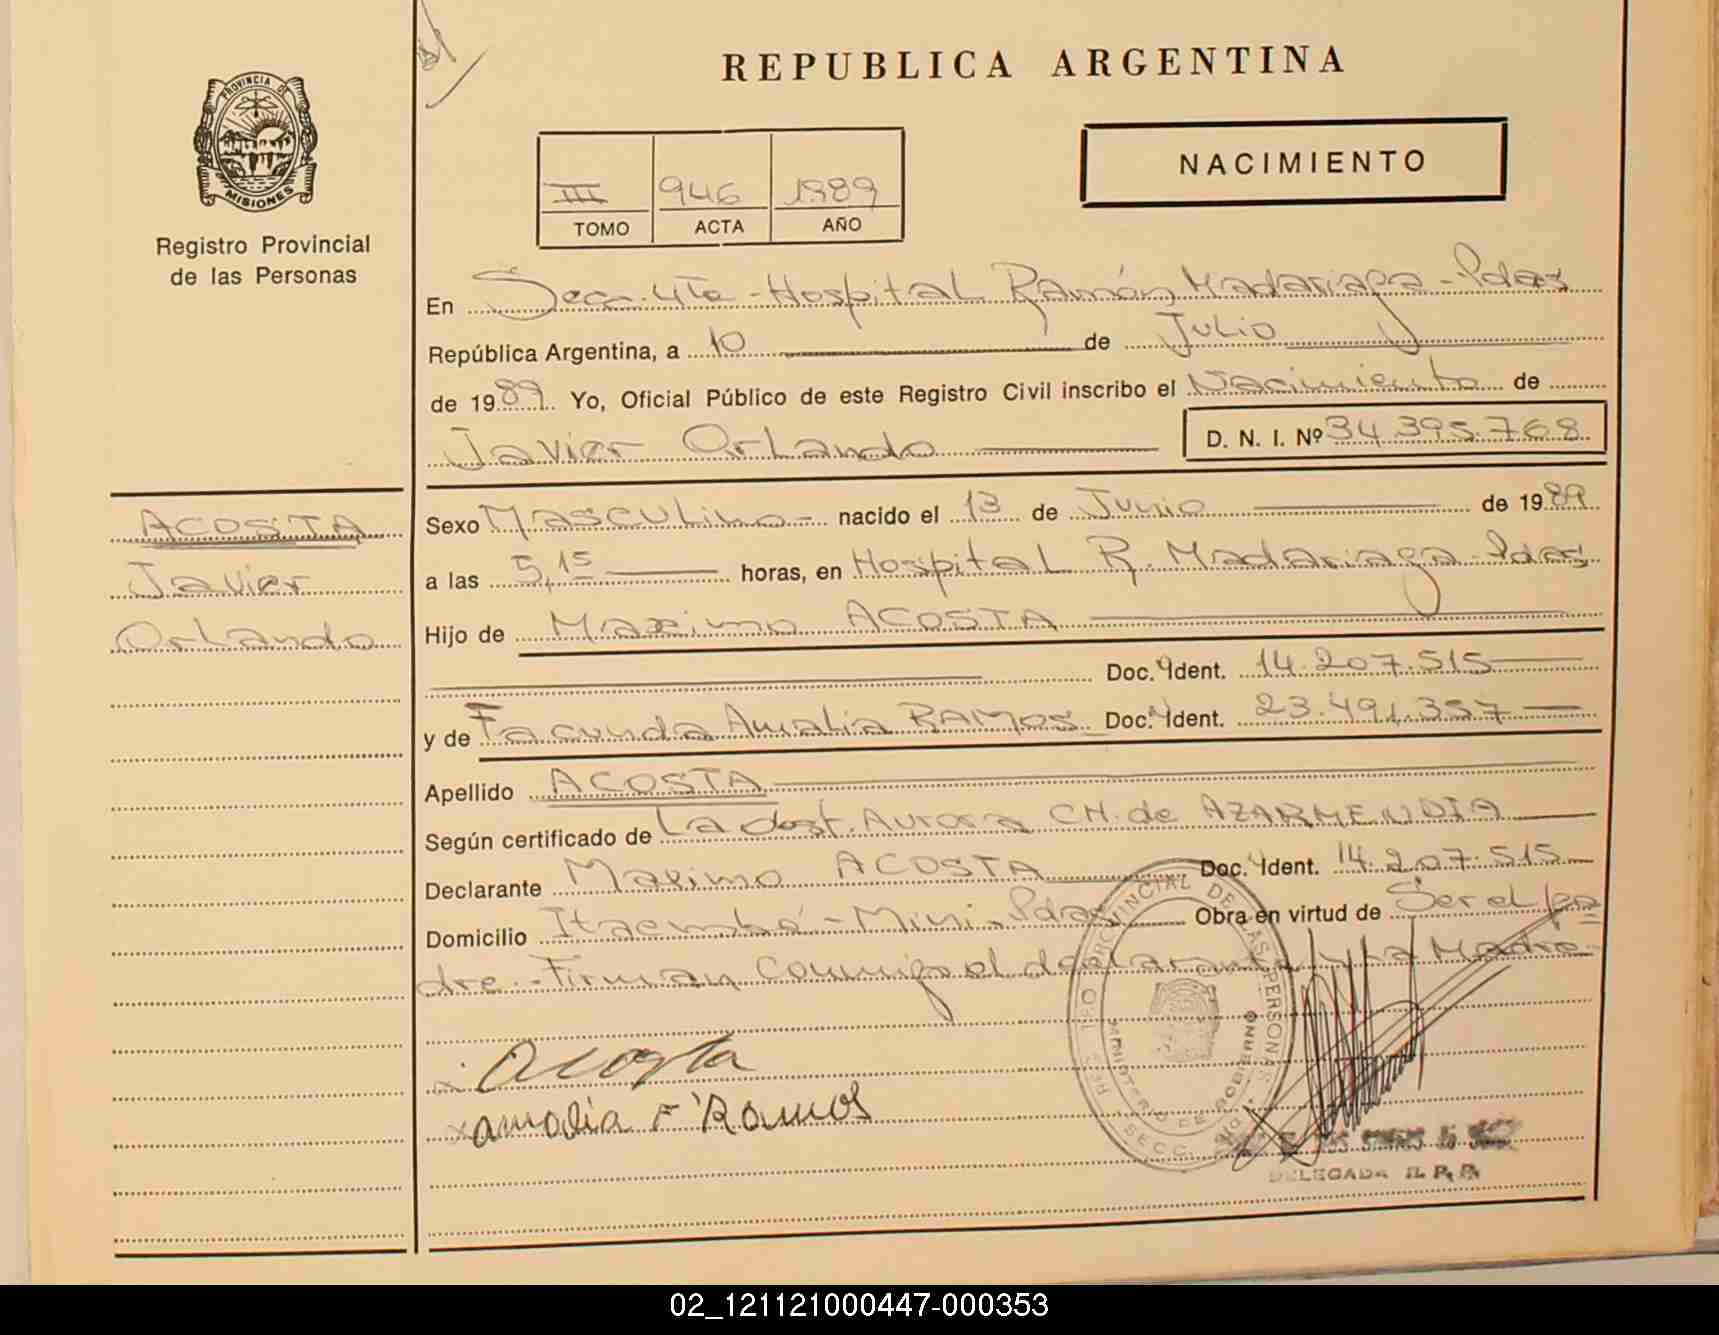 REPUBLICA ARGENTINA
PROVINCIA DE
MISIONES
Registro Provincial
de las Personas
NACIMIENTO
III 946 1989
TOMO ACTA AÑO
En Secc. 4ta - Hospital Ramón Madariaga - Pdas
República Argentina, a 10 de Julio
de 1989. Yo, Oficial Público de este Registro Civil inscribo el Nacimiento de
Javier Orlando D. N. I. Nº 34.395.768
ACOSTA
Javier
Orlando
Sexo Masculino - nacido el 13 de Junio de 1989
a las 5,15 horas, en Hospital R. Madariaga - Pdas
Hijo de Maximo ACOSTA
Doc. Ident. 14.207.515
y de Facunda Amalia RAMOS Doc. Ident. 23.491.357
Apellido ACOSTA
Según certificado de La obst. Aurora CH. de AZARMENDIA
Declarante Maximo ACOSTA Doc. Ident. 14.207.515
Domicilio Itaembé - Mini - Pdas Obra en virtud de Ser el pa
dre. - Firman conmigo el declarante y la Madre -
Acosta
x amalia F Ramos
PROVINCIAL DE LAS PERSONAS
MINISTERIO DE GOBIERNO
SECC.
DELEGADA R. P. P.
02_121121000447-000353